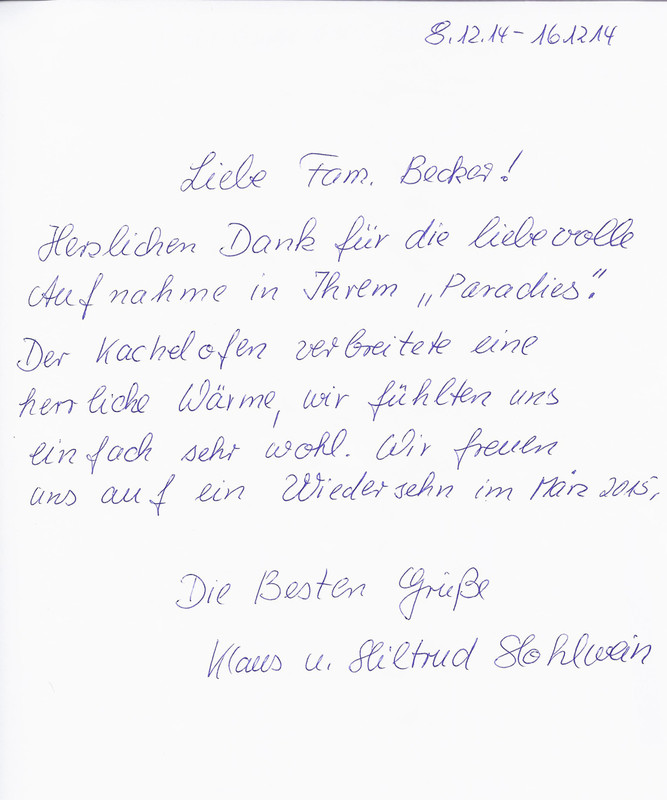 8.12.14 - 16.12.14
Liebe Fam. Becker!
Herzlichen Dank für die liebevolle
Aufnahme in Ihrem „Paradies".
Der Kachelofen verbreitete eine
herrliche Wärme, wir fühlten uns
einfach sehr wohl. Wir freuen
uns auf ein Wiedersehn im März 2015,
Die Besten Grüße
Klaus u. Hiltrud